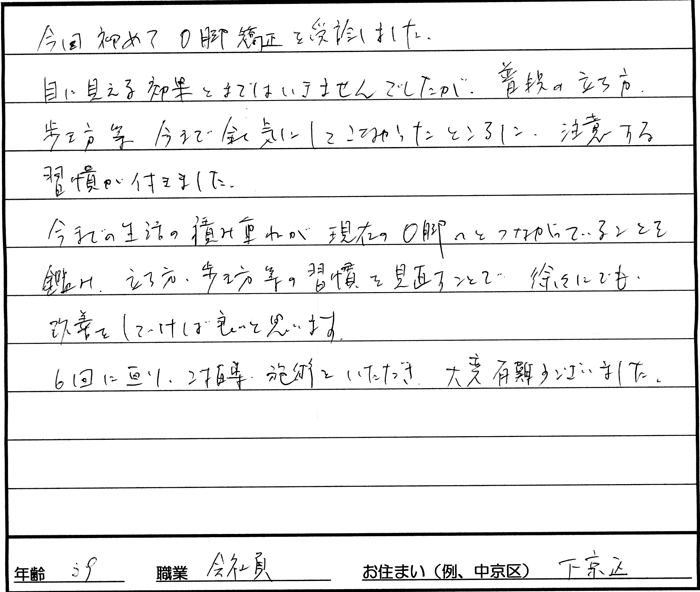 今回初めてO脚矯正を受診しました。
目に見える効果とまではいきませんでしたが、普段の立ち方、
歩き方等 今まで全く気にしてこなかったところに、注意する
習慣が付きました。
今までの生活の積み重ねが現在のO脚へとつながっていることを
鑑み、立ち方、歩き方等の習慣を見直すことで 徐々にでも、
改善をしていけば良いと思います。
6回に亘り、ご指導、施術をいただき、大変有難うございました。
年齢 39 職業 会社員 お住まい（例、中京区） 下京区